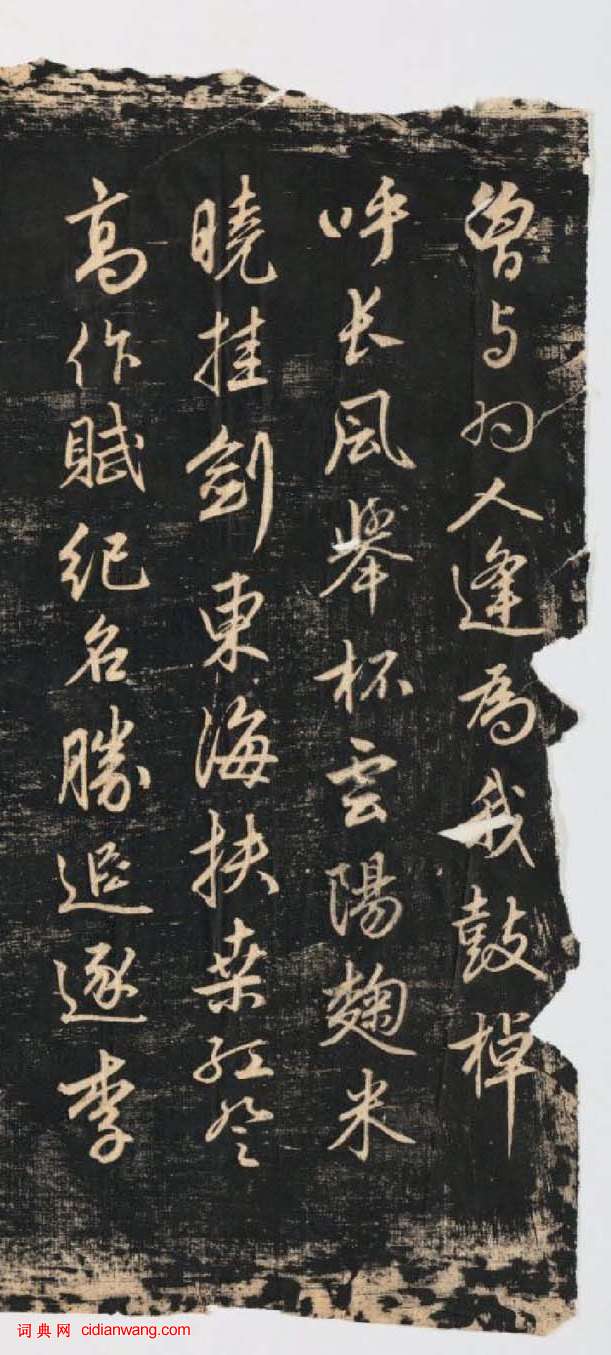 曾与羽人逢為我鼓棹
呼长風舉杯雲陽麹米
曉挂劍東海扶桒紅登
高作賦紀名勝追逐李
词典网 cidianwang.com